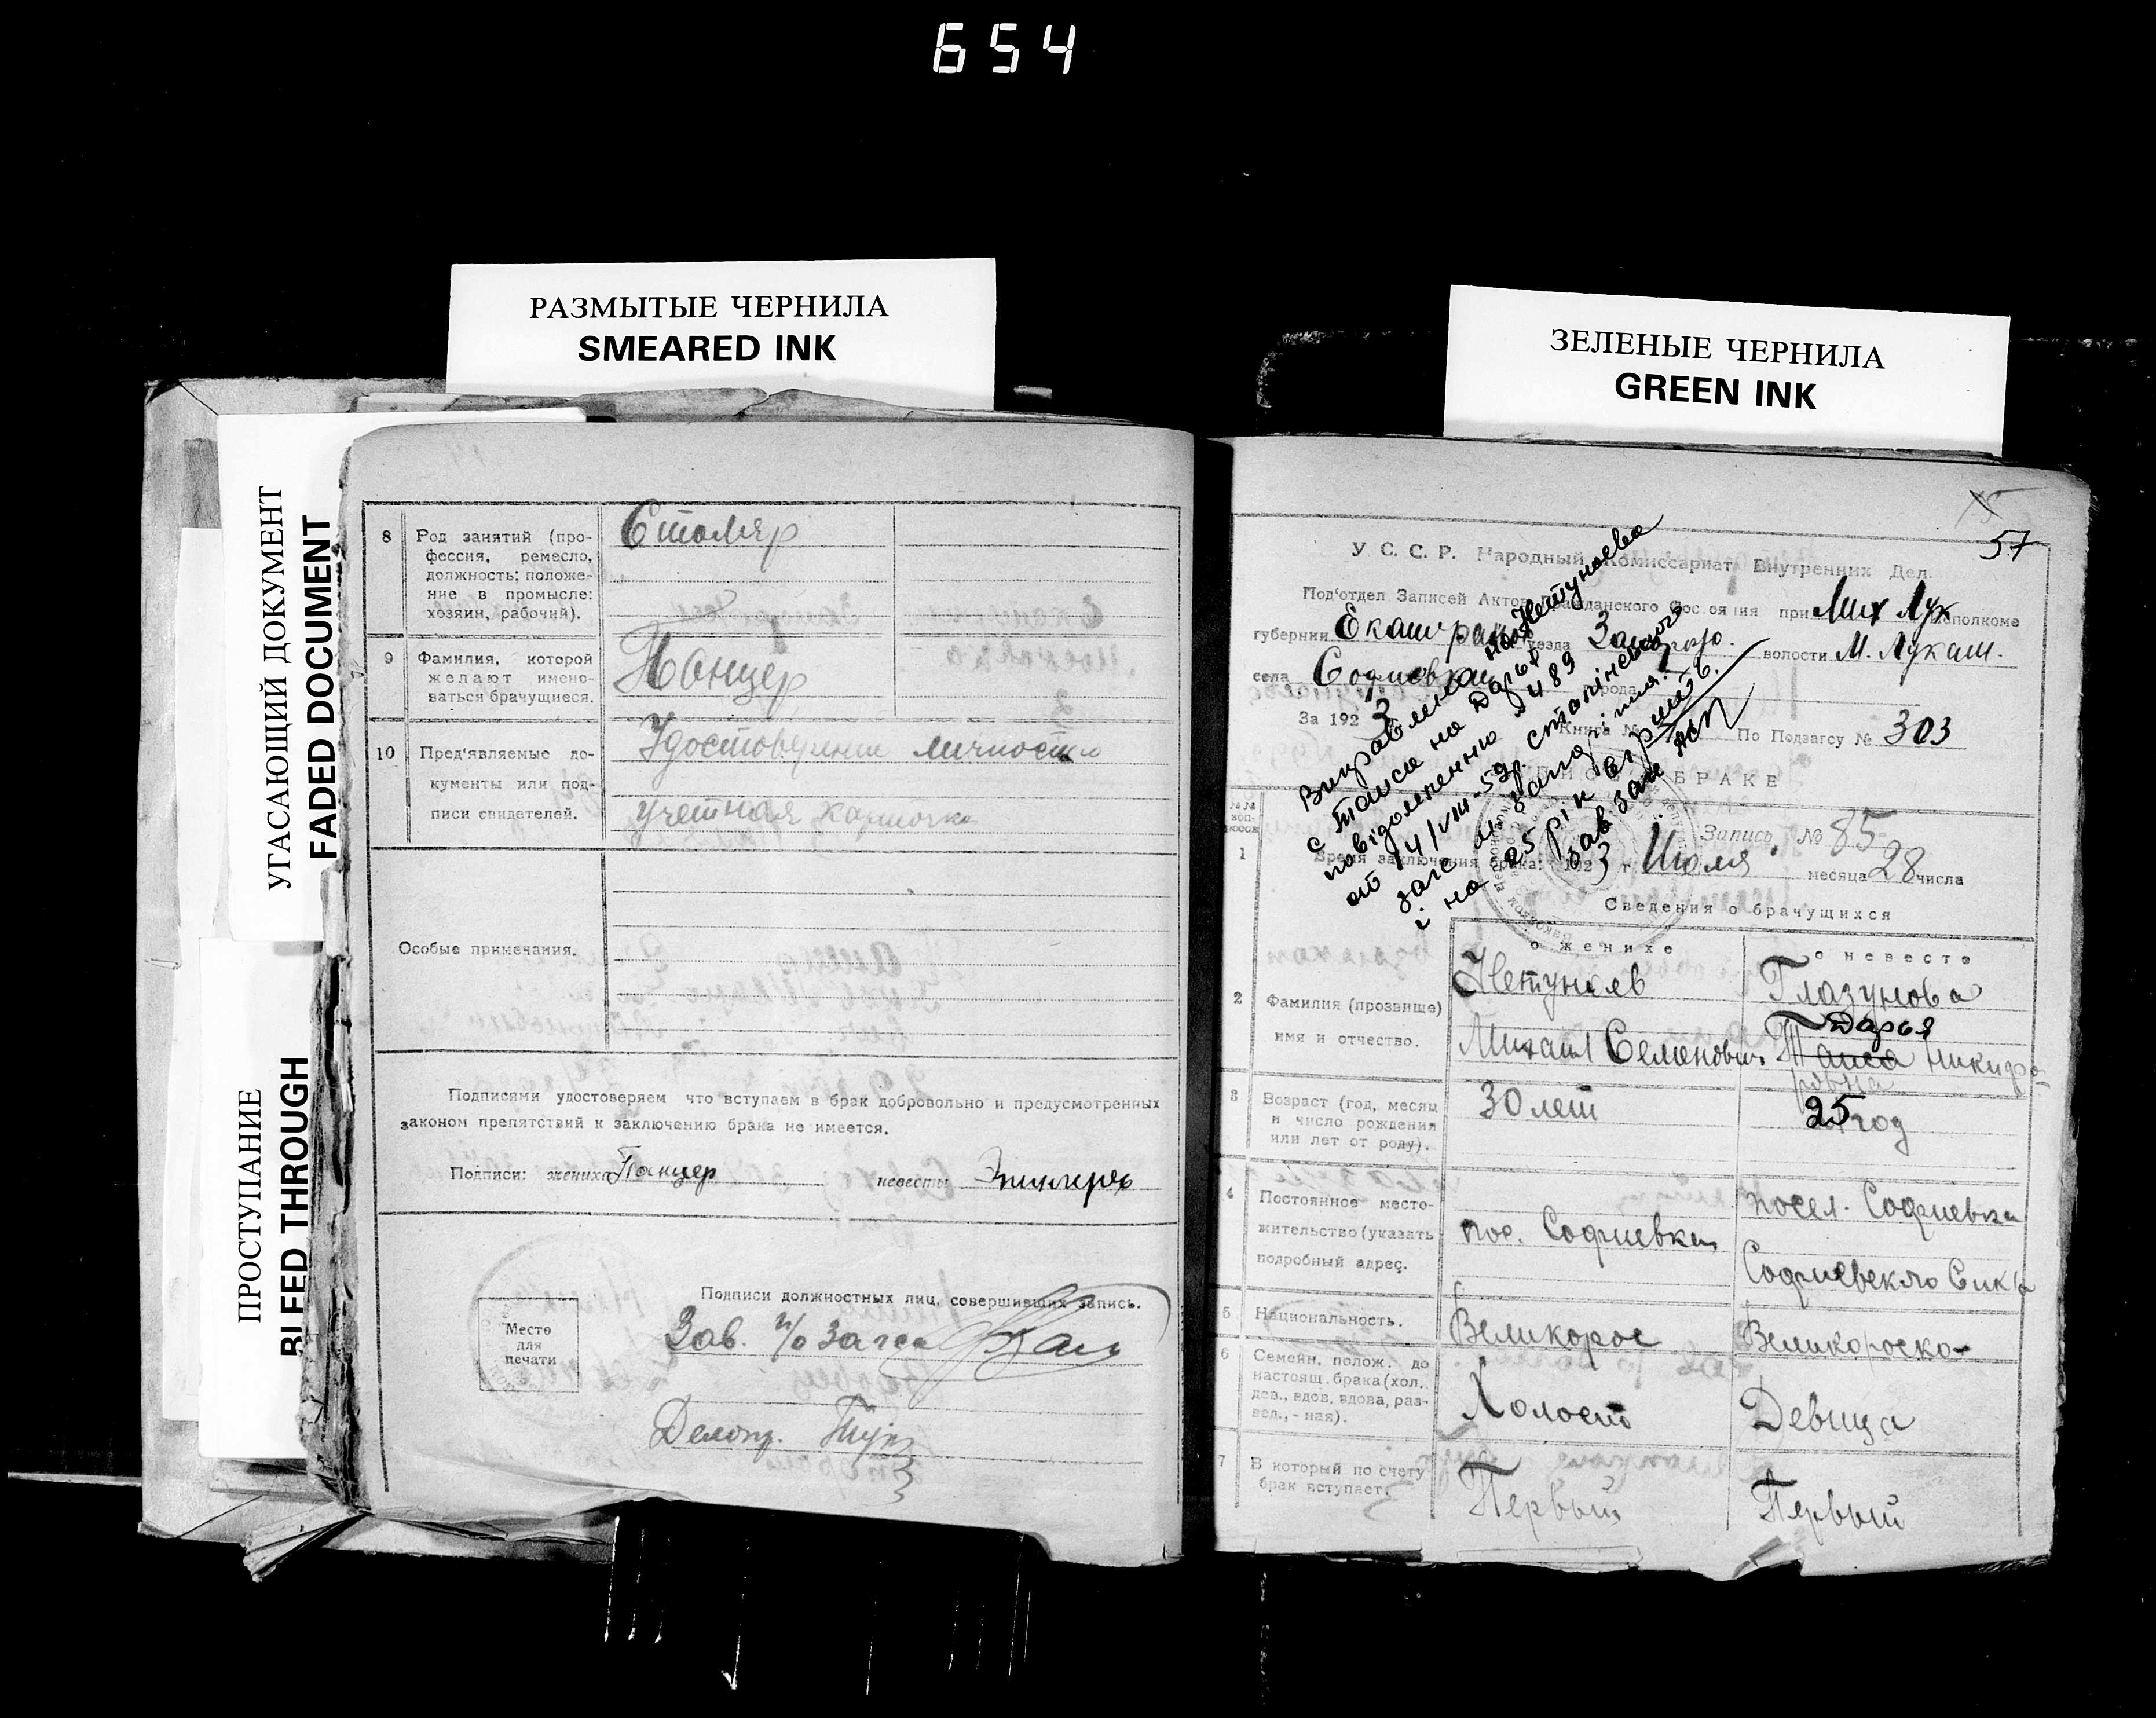 654
РАЗМЫТЫЕ ЧЕРНИЛА
SMEARED INK
ЗЕЛЕНЫЕ ЧЕРНИЛА
GREEN INK
УГАСАЮЩИЙ ДОКУМЕНТ
FADED DOCUMENT
ПРОСТУПАНИЕ
BLEED THROUGH
8 Род занятий (про-
фессия, ремесло,
должность; положе-
ние в промысле:
хозяин, рабочий).
Столяр
9 Фамилия, которой
желают имено-
ваться брачущиеся.
Панцер
10 Пред'являемые до-
кументы или под-
писи свидетелей.
Удостоверение личности
учетная карточка
Особые примечания.
Подписями удостоверяем что вступаем в брак добровольно и предусмотренных
законом препятствий к заключению брака не имеется.
Подписи: жениха Панцер невесты
Подписи должностных лиц, совершивших запись.
Место
для
печати
Зав. п/о Загса
Делопр.
15
57
У С. С. Р. Народный Комиссариат Внутренних Дел.
Под'отдел Записей Актов Гражданского Состояния при Мих Лук полкоме
губернии Екатер уезда Запорож. волости М. Лукаш.
села Софиевка города
За 1923 Книга № По Подзагсу № 303
О БРАКЕ
Виправлено на Нетунаева
с Таиса на Дарья
повідомленню 489
от 14/VIII-59р. сталінського
загс м. Запоріжжя.
і на 25 рік вірить.
зав загс
№№ воп-росов
Запись № 85
1 Время заключения брака: 1923 г. Июля месяца 28 числа
Сведения о брачущихся
о женихе
о невесте
2 Фамилия (прозвище)
имя и отчество.
Нетунаев
Михаил Семенович
Глазунова
Дарья
Таиса Никифо-
ровна
3 Возраст (год, месяц
и число рождения
или лет от роду).
30 лет
25 год
4 Постоянное место-
жительство (указать
подробный адрес.
пос. Софиевка
посел. Софиевка
5 Национальность.
Великорос
Великороска
6 Семейн. полож. до
настоящ. брака (хол.,
дев., вдов, вдова, раз-
вед., - ная).
Холост
Девица
7 В который по счету
брак вступает.
Первый
Первый